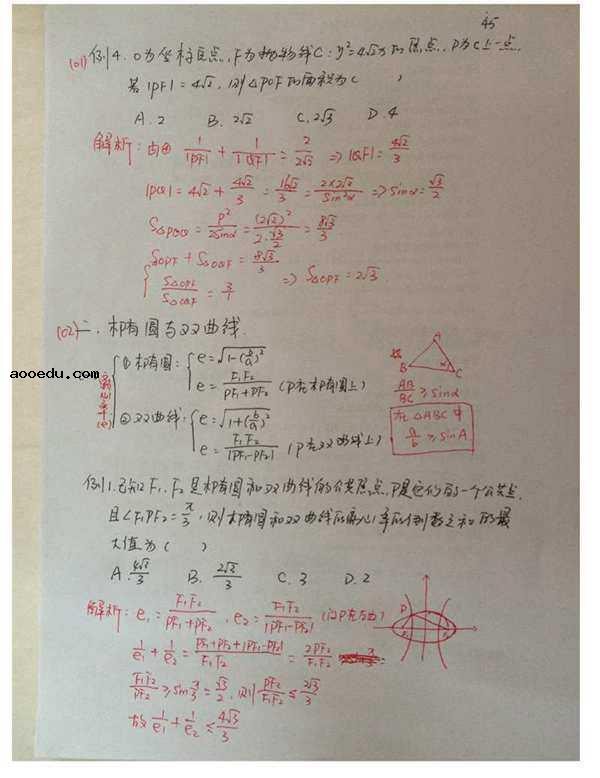 45
(01) 例4. O为坐标原点, F为抛物线C: y²=4√2x的焦点, P为C上一点,
若|PF|=4√2, 则△POF的面积为( )
A. 2 B. 2√2 C. 2√3 D. 4
解析: 由④ 1/|PF| + 1/|QF| = 2/2√2 => |QF| = 4√2/3
|PQ| = 4√2 + 4√2/3 = 16√2/3 = 2×2√2/sin²α => sinα = √3/2
S△POQ = P²/2sinα = (2√2)²/2·√3/2 = 8√3/3
{ S△OPF + S△OQF = 8√3/3
S△OPF/S△OQF = 3/1 => S△OPF = 2√3
(02) 二、椭圆与双曲线.
离心率(e)
① 椭圆: { e = √1-(b/a)²
e = F₁F₂/PF₁+PF₂ (P在椭圆上)
② 双曲线: { e = √1+(b/a)²
e = F₁F₂/|PF₁-PF₂| (P在双曲线上)
A
B C
α
AB/BC ≥ sinα
在△ABC中
a/b ≥ sinA
aooedu.com
例1. 已知F₁、F₂是椭圆和双曲线的公共焦点, P是它们的一个公共点.
且∠F₁PF₂=π/3, 则椭圆和双曲线的离心率的倒数之和的最
大值为( )
A. 4√3/3 B. 2√3/3 C. 3 D. 2
解析: e₁ = F₁F₂/PF₁+PF₂, e₂ = F₁F₂/|PF₁-PF₂| (设P在左支)
P
1/e₁ + 1/e₂ = PF₁+PF₂+|PF₁-PF₂|/F₁F₂ = 2PF₂/F₁F₂
F₁F₂/PF₂ ≥ sinπ/3 = √3/2, 则 PF₂/F₁F₂ ≤ 2√3/3
故 1/e₁ + 1/e₂ ≤ 4√3/3